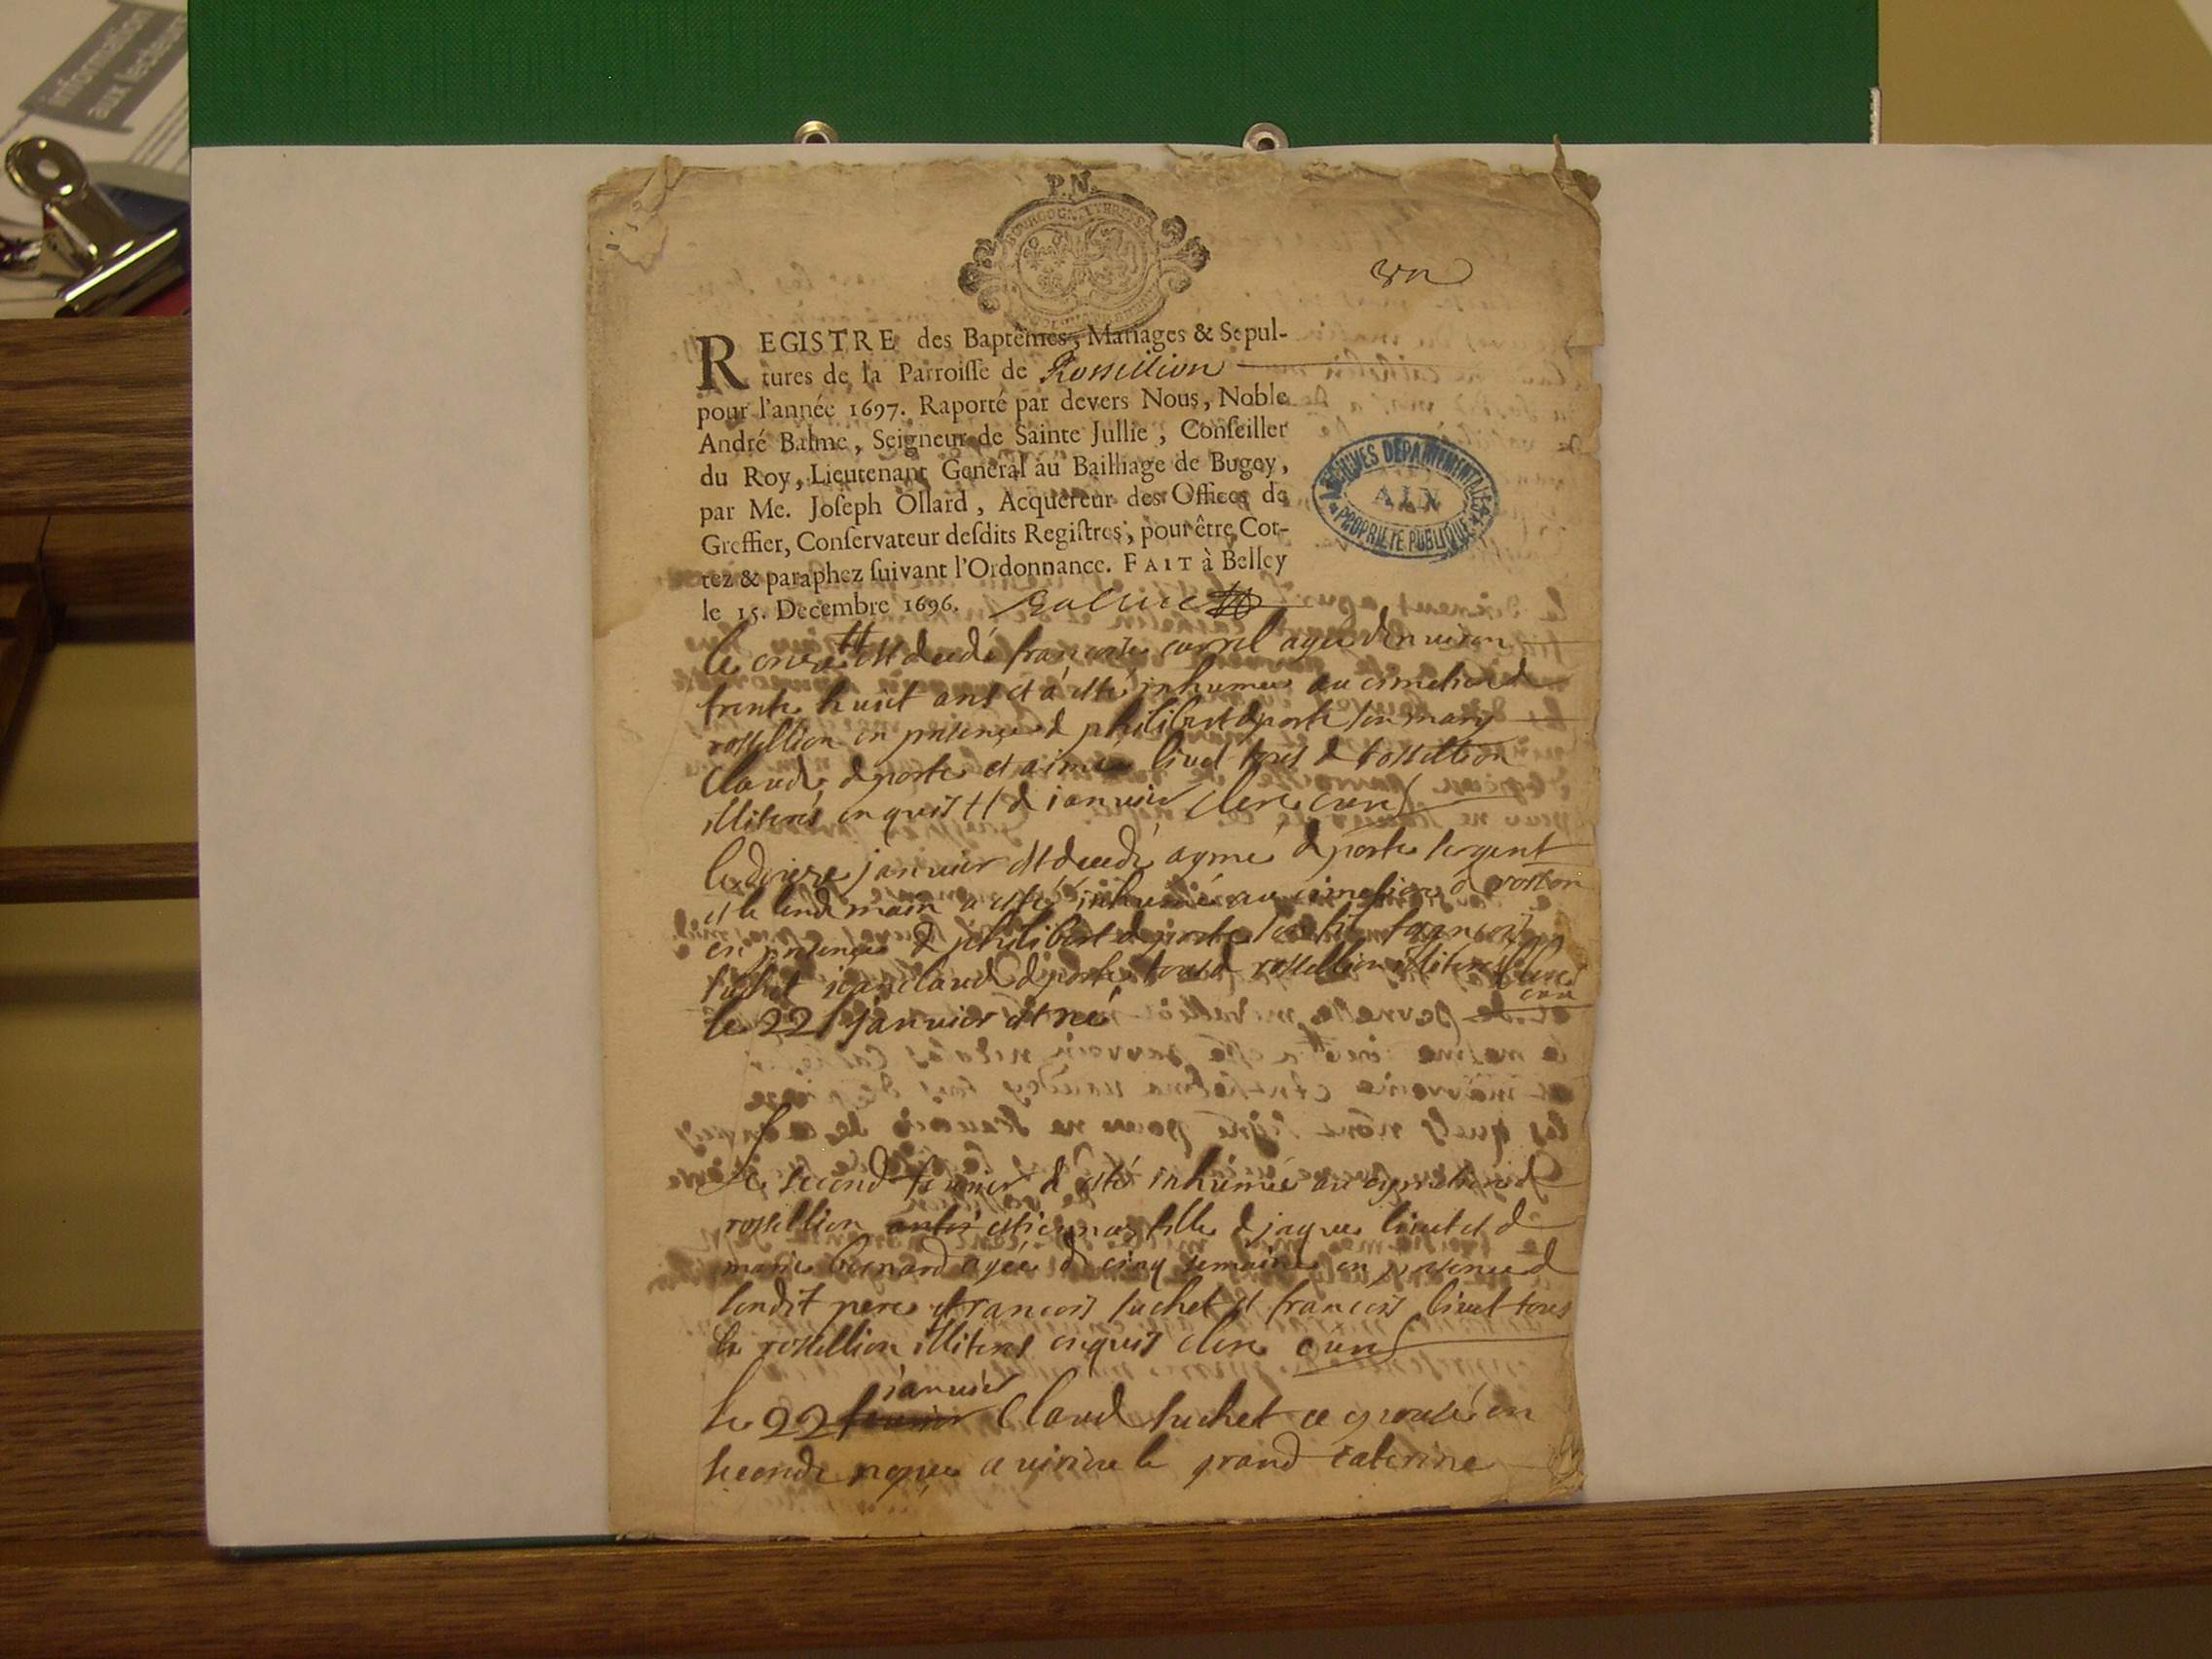 information
aux lecteurs
P.N.
REGISTRE des Baptêmes, Mariages & Sepul-
tures de la Parroisse de Rossillion
pour l'année 1697. Raporté par devers Nous, Noble
André Balme, Seigneur de Sainte Jullie, Conseiller
du Roy, Lieutenant General au Bailliage de Bugey,
par Me. Joseph Ollard, Acquereur des Offices de
Greffier, Conservateur desdits Registres, pour être Cot-
tez & paraphez suivant l'Ordonnance. FAIT à Belley
le 15. Decembre 1696. Balme
ARCHIVES DEPARTEMENTALES
AIN
PROPRIETE PUBLIQUE
le est decedé françoise agée denviron
trente huit ans et a esté inhumee au cimetiere de
rossellion en presence de philibert deporte son mary
Claude deporte et aimé livet tous de rossellion
illiterés enquis 11 de janvier clerc curé
le janvier est decedé aymé deporte sergent
et le lendemain a esté inhumé au cimetiere de
en presence de philibert deporte son fils françois
suchet jean claude deporte tous de rossellion illiterés clerc
curé
le 22 janvier est né
le second fevrier a esté inhumée au cymetiere de
rossellion fille de jaques livet et de
marie bernard agée de cinq semaines en presence de
sondit pere françois suchet et françois livet tous
de rossellion illiterés enquis clerc curé
janvier
le 22 fevrier Claude suchet a epousé en
seconde nopces a virieu le grand caterine